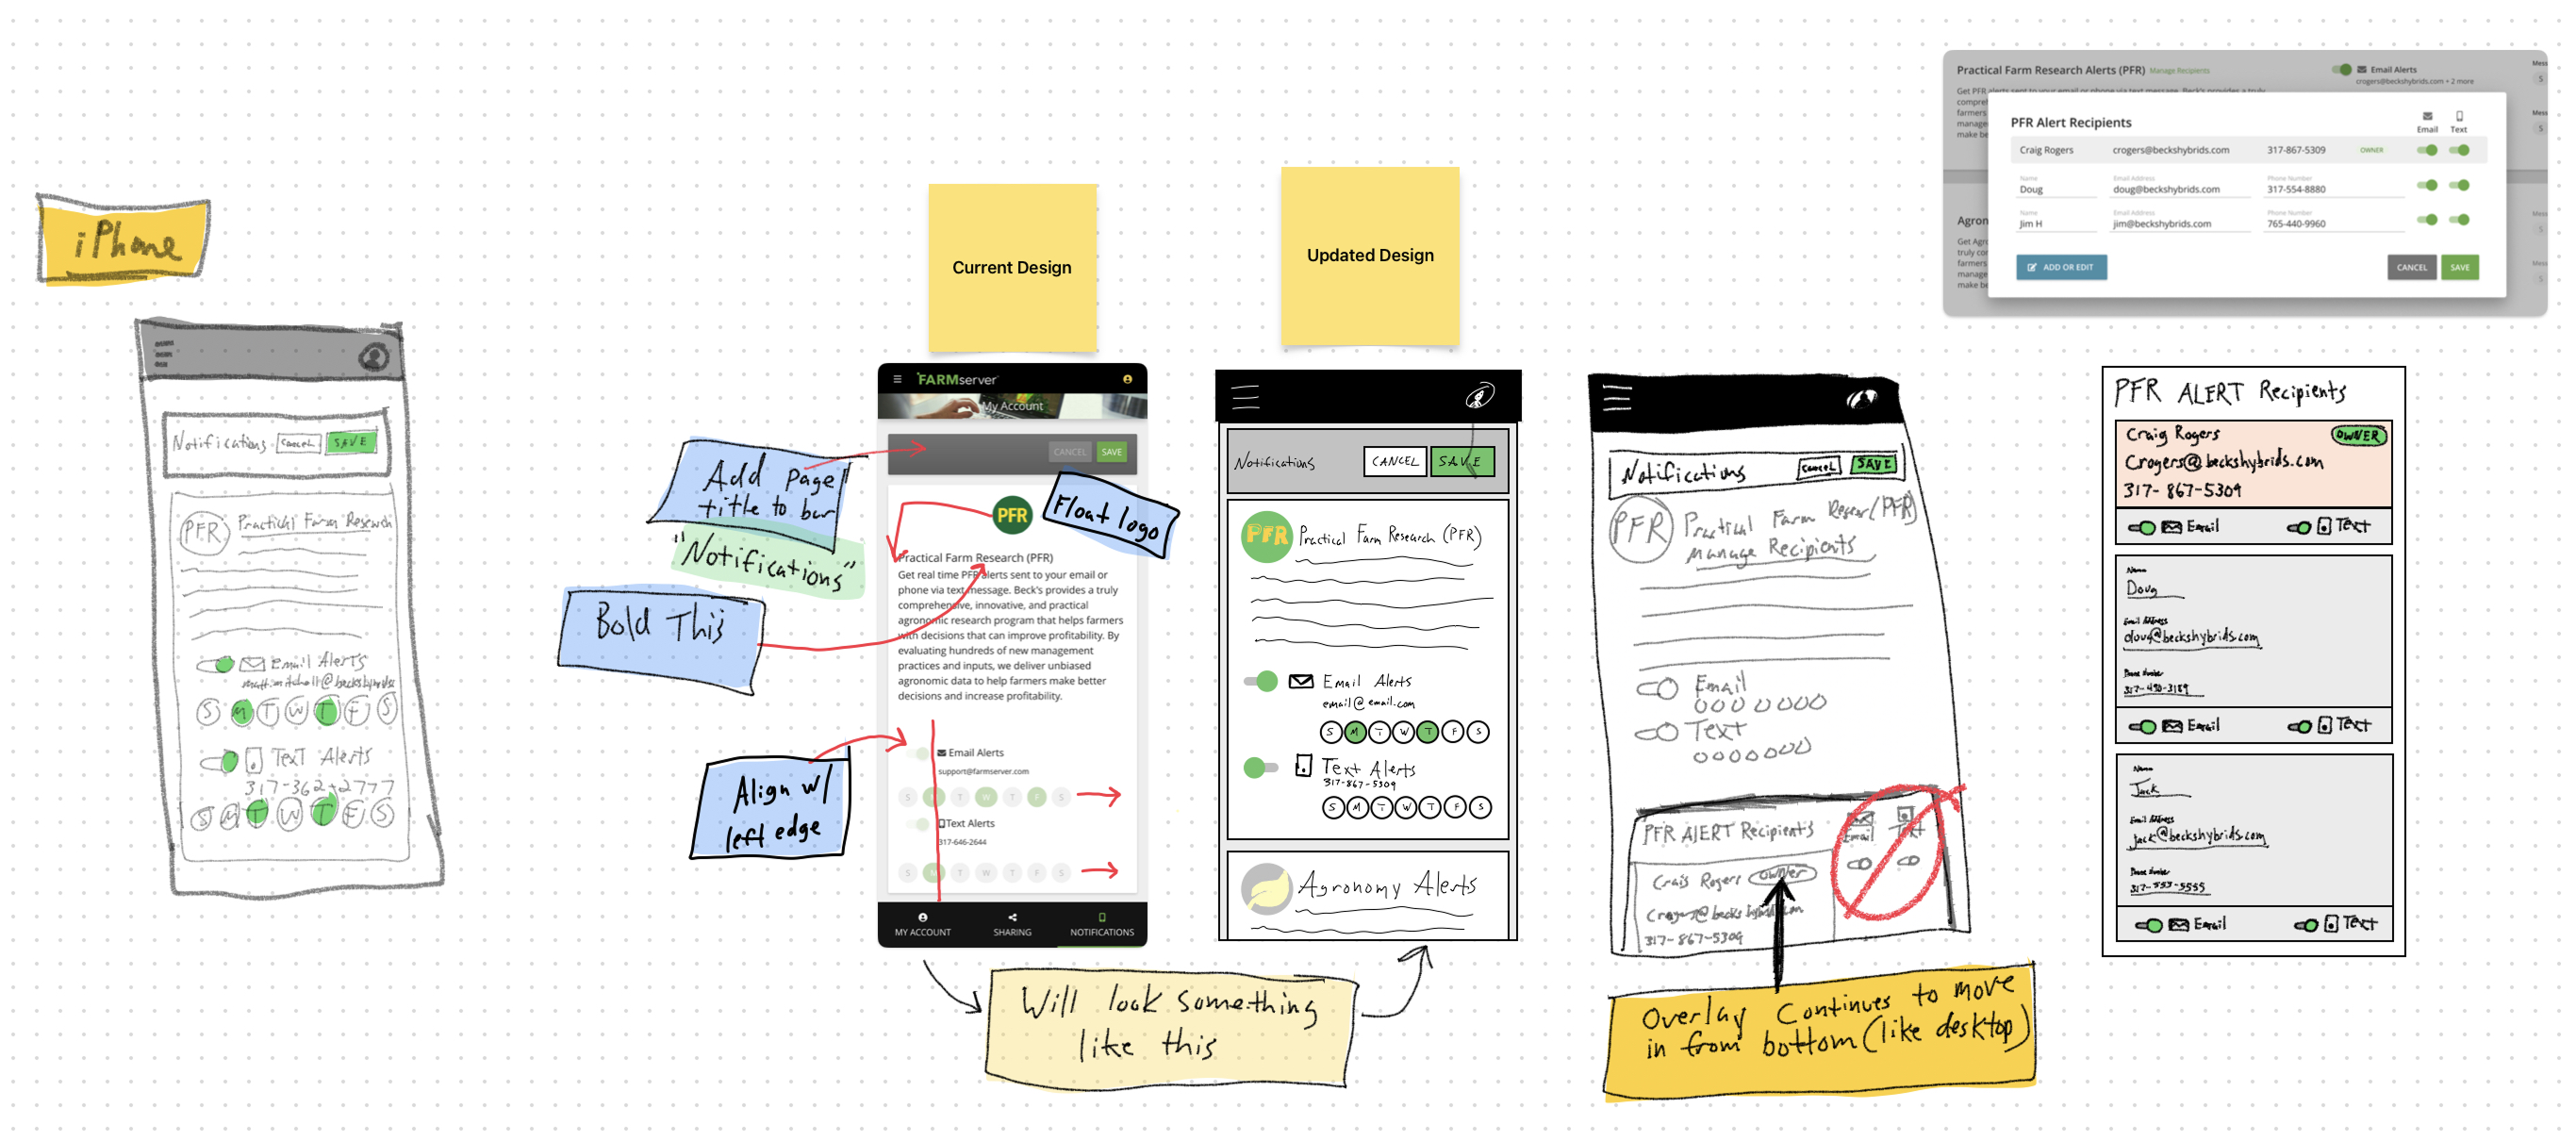 iPhone
Notifications
Cancel
SAVE
PFR
Practical Farm Research
Email Alerts
S M T W T F S
Text Alerts
317-362-2777
S M T W T F S
Add page
title to bar
"Notifications"
Bold This
Align w/
left edge
Float logo
Current Design
FARMserver
My Account
CANCEL
SAVE
PFR
Practical Farm Research (PFR)
Get real time PFR alerts sent to your email or
phone via text message. Beck's provides a truly
comprehensive, innovative, and practical
agronomic research program that helps farmers
with decisions that can improve profitability. By
evaluating hundreds of new management
practices and inputs, we deliver unbiased
agronomic data to help farmers make better
decisions and increase profitability.
Email Alerts
support@farmserver.com
S M T W T F S
Text Alerts
317-646-2644
S M T W T F S
MY ACCOUNT
SHARING
NOTIFICATIONS
Will look something
like this
Updated Design
Notifications
CANCEL
SAVE
PFR
Practical Farm Research (PFR)
Email Alerts
email@email.com
S M T W T F S
Text Alerts
317-867-5309
S M T W T F S
Agronomy Alerts
Notifications
Cancel
SAVE
PFR
Practical Farm (PFR)
Manage Recipients
Email
Text
PFR Alert Recipients
Email
Text
Craig Rogers
owner
317-867-5309
Overlay Continues to move
in from bottom (like desktop)
Practical Farm Research Alerts (PFR)
Manage Recipients
Email Alerts
crogers@beckshybrids.com + 2 more
Mess
S
Get PFR alerts sent to your email or phone via text message. Beck's provides a truly
compreh
farmers
manage
make be
Mess
S
PFR Alert Recipients
Email
Text
Craig Rogers
crogers@beckshybrids.com
317-867-5309
OWNER
Name
Email Address
Phone Number
Doug
doug@beckshybrids.com
317-554-8880
Name
Email Address
Phone Number
Jim H
jim@beckshybrids.com
765-440-9960
ADD OR EDIT
CANCEL
SAVE
Agron
Get Agr
truly co
farmers
manage
make be
Mess
S
Mess
S
PFR ALERT Recipients
Craig Rogers
OWNER
Crogers@beckshybrids.com
317-867-5309
Email
Text
Name
Doug
Email Address
doug@beckshybrids.com
Phone Number
317-490-3189
Email
Text
Name
Jack
Email Address
jack@beckshybrids.com
Phone Number
317-555-5555
Email
Text